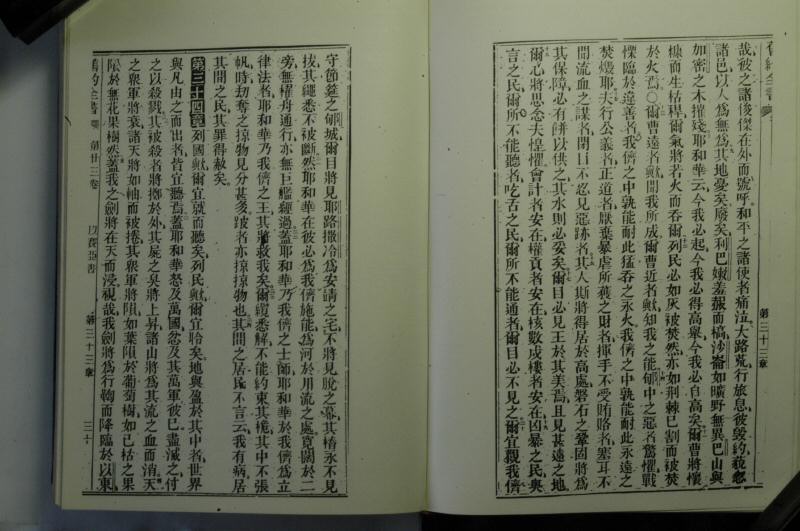 舊約全書
第三十三章
哉彼之諸俊傑在外而號呼和平之諸使者痛泣大路荒行旅息彼毀約藐忽
諸邑以人為無為其地憂矣廢矣利巴嫩羞赧而槁沙崙如曠野無異巴山與
加密之木摧殘耶和華云今我必起今我必得高舉今我必自高矣爾曹將懷
糠而生枯稈爾氣將若火而吞爾列民必如灰被焚然亦如荊棘已割而被焚
於火焉○爾曹遠者歟聞我所成爾曹近者歟知我之能郇中之惡者驚懼戰
慄臨於違善者我儕之中孰能耐此猛吞之永火我儕之中孰能耐此永遠之
焚燬耶夫行公義者正道者厭棄暴虐所獲之財者揮手不受賄賂者塞耳不
聞流血之謀者閉目不忍見惡跡者其人斯將得居於高處磐石之鞏固將為
其保障必有餅以供之其水則必妥矣爾目必見王於其美焉且見甚遠之地
爾心將思念夫惶懼會計者安在權貢者安在核數戍樓者安在凶暴之民奧
言之民爾所不能聽者吃舌之民爾所不能通者爾目必不見之爾宜觀我儕
守節筵之郇城爾目將見耶路撒冷為安靖之宅不將見脫之幕其樁永不見
拔其繩悉不被斷然耶和華在彼必為我儕施能為河於用流之處寬闊於二
旁無權舟通行亦無巨艦經過蓋耶和華乃我儕之士師耶和華於我儕為立
律法者耶和華乃我儕之王其將救我矣爾纜悉解不能約束其桅其中不張
帆時刧奪之掠物見分甚多跛者亦掠掠物也其間之居民不言云我有病居
其間之民其罪得赦矣
第三十四章列國歟爾宜就而聽矣列民歟爾宜聆矣地與盈於其中者世界
與凡由之而出者皆宜聽焉蓋耶和華怒及萬國忿及其萬軍彼已盡滅之付
之以殺戮其被殺者將擲於外其屍之臭將上昇諸山將為其流之血而消天
之眾軍將衰諸天將如軸而被捲其眾軍將隕如葉隕於葡萄樹如已枯之果
隕於無花果樹然蓋我之劍將在天而浸視哉我劍將為行鞫而降臨於以東
舊約全書
第廿三卷
以賽亞書
第三十三章
三十